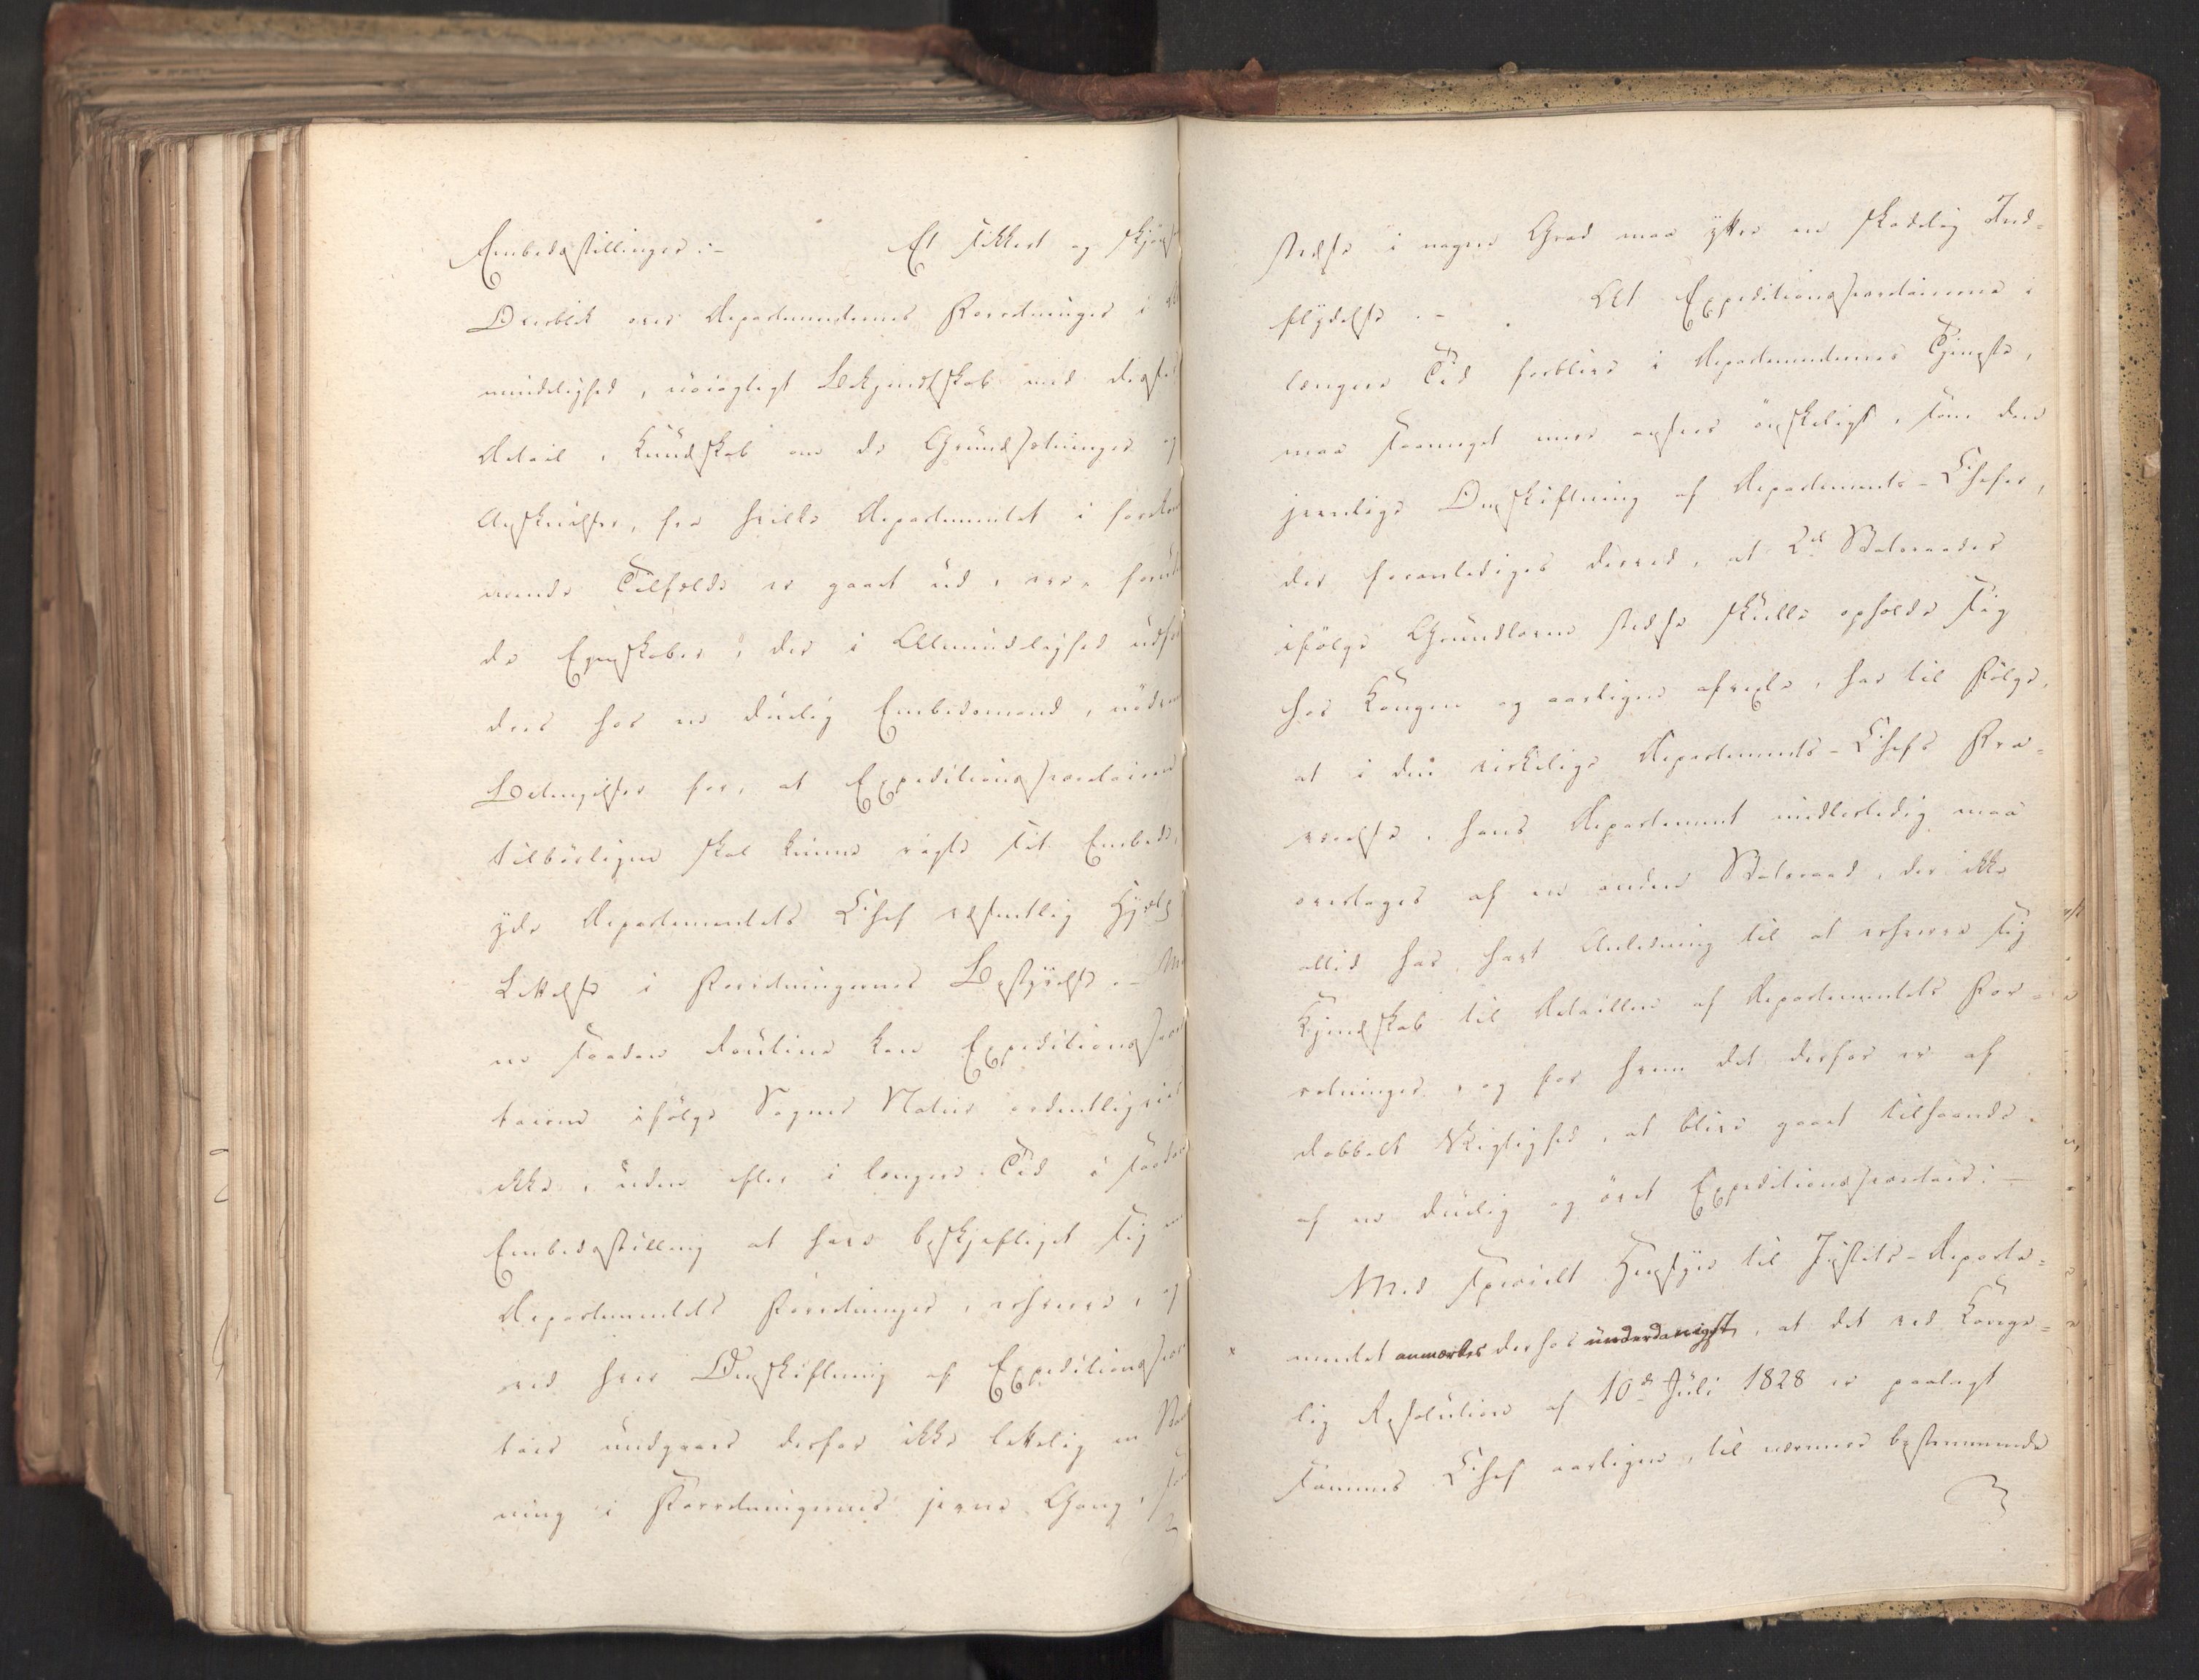 Embedsstillinger. – Et sikkert og skjøn
Overblik over Departementernes Forretninger i Al
mindelighed, nøiagtigt Bekjendtskab med disses
Detail, Kundskab om de Grundsætninger og
Anskuelser, fra hvilke Departementet i forekom
mende Tilfælde er gaaet ud, ere, foruden
de Egenskaber, der i Almindelighed udfor
dres hos en duelig Embedsmand, nødven
Betingelser for, at Expeditionssecretairen
tilbørligen skal kunne røgte sit Embede,
yde Departementets Chef væsentlig Hjelp
Lettelse i Forretningernes Bestyrelse. –
en saadan Routine kan Expeditionssecre
tairen ifølge Sagens Natur ordentligviis
ikke, uden efter i længere Tid i saadan
Embedsstilling at have beskjeftiget sig med
Departementets Forretninger, erhverve, og
ved hver Omskiftning af Expeditionssecre
tair undgaaes derfor ikke lettelig en
ning i Forretningernes jevne Gang, som
stedse i nogen Grad maa yttre en skadelig Ind-
flydelse. – At Expeditionssecretairerne i
længere Tid forblive i Departementernes Tjeneste,
maa saameget mere ansees ønskeligt, som den
jevnlige Omskiftning af Departements-Chefer,
der foranlediges derved, at 2de Statsraader
ifølge Grundloven stedse skulle opholde sig
hos Kongen og aarligen afvexle, har til Følge,
at i den virkelige Departements-Chefs Fra-
værelse, hans Departement midlertidig maa
overtages af en anden Statsraad, der ikke
altid har havt Anledning til at erhverve sig
Kjendskab til Detaillen af Departementets For-
retninger, og for hvem det derfor er af
dobbelt Vigtighed, at blive gaaet tilhaande
af en duelig og øvet Expeditionssecretair. –
Med specielt Hensyn til Justits-Departe-
mentet anmærkes derhos underdanigst, at det ved Konge-
lig Resolution af 10de Juli 1828 er paalagt
sammes Chef aarligen, til nærmere bestemmende